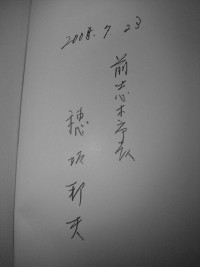 2008.7 23
前志木市長
穂坂邦夫